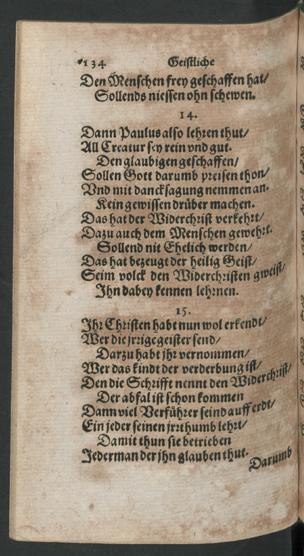 134 Geistliche
Den Menschen frey geschaffen hat/
Sollends niessen ohn schewen.
14.
Dann Paulus also lehren thut/
All Creatur sey rein vnd gut.
Den glaubigen geschaffen/
Sollen Gott darumb preisen thon/
Vnd mit dancksagung nemmen an.
Kein gewissen drüber machen.
Das hat der Widerchrist verkehrt/
Dazu auch dem Menschen gewehrt.
Sollend nit Ehelich werden/
Das hat bezeugt der heilig Geist/
Seim volck den Widerchristen gweist/
Ihn dabey kennen lehrnen.
15.
Ihr Christen habt nun wol erkendt/
Wer die jrrigegeister send/
Darzu habt jhr vernommen/
Wer das kindt der verderbung ist/
Den die Schrifft nennt den Widerchrist/
Der abfal ist schon kommen
Dann viel Verführer seind auff erdt/
Ein jeder seinen jrrthumb lehrt/
Damit thun sie betrieben
Jederman der jhn glauben thut.
Darumb